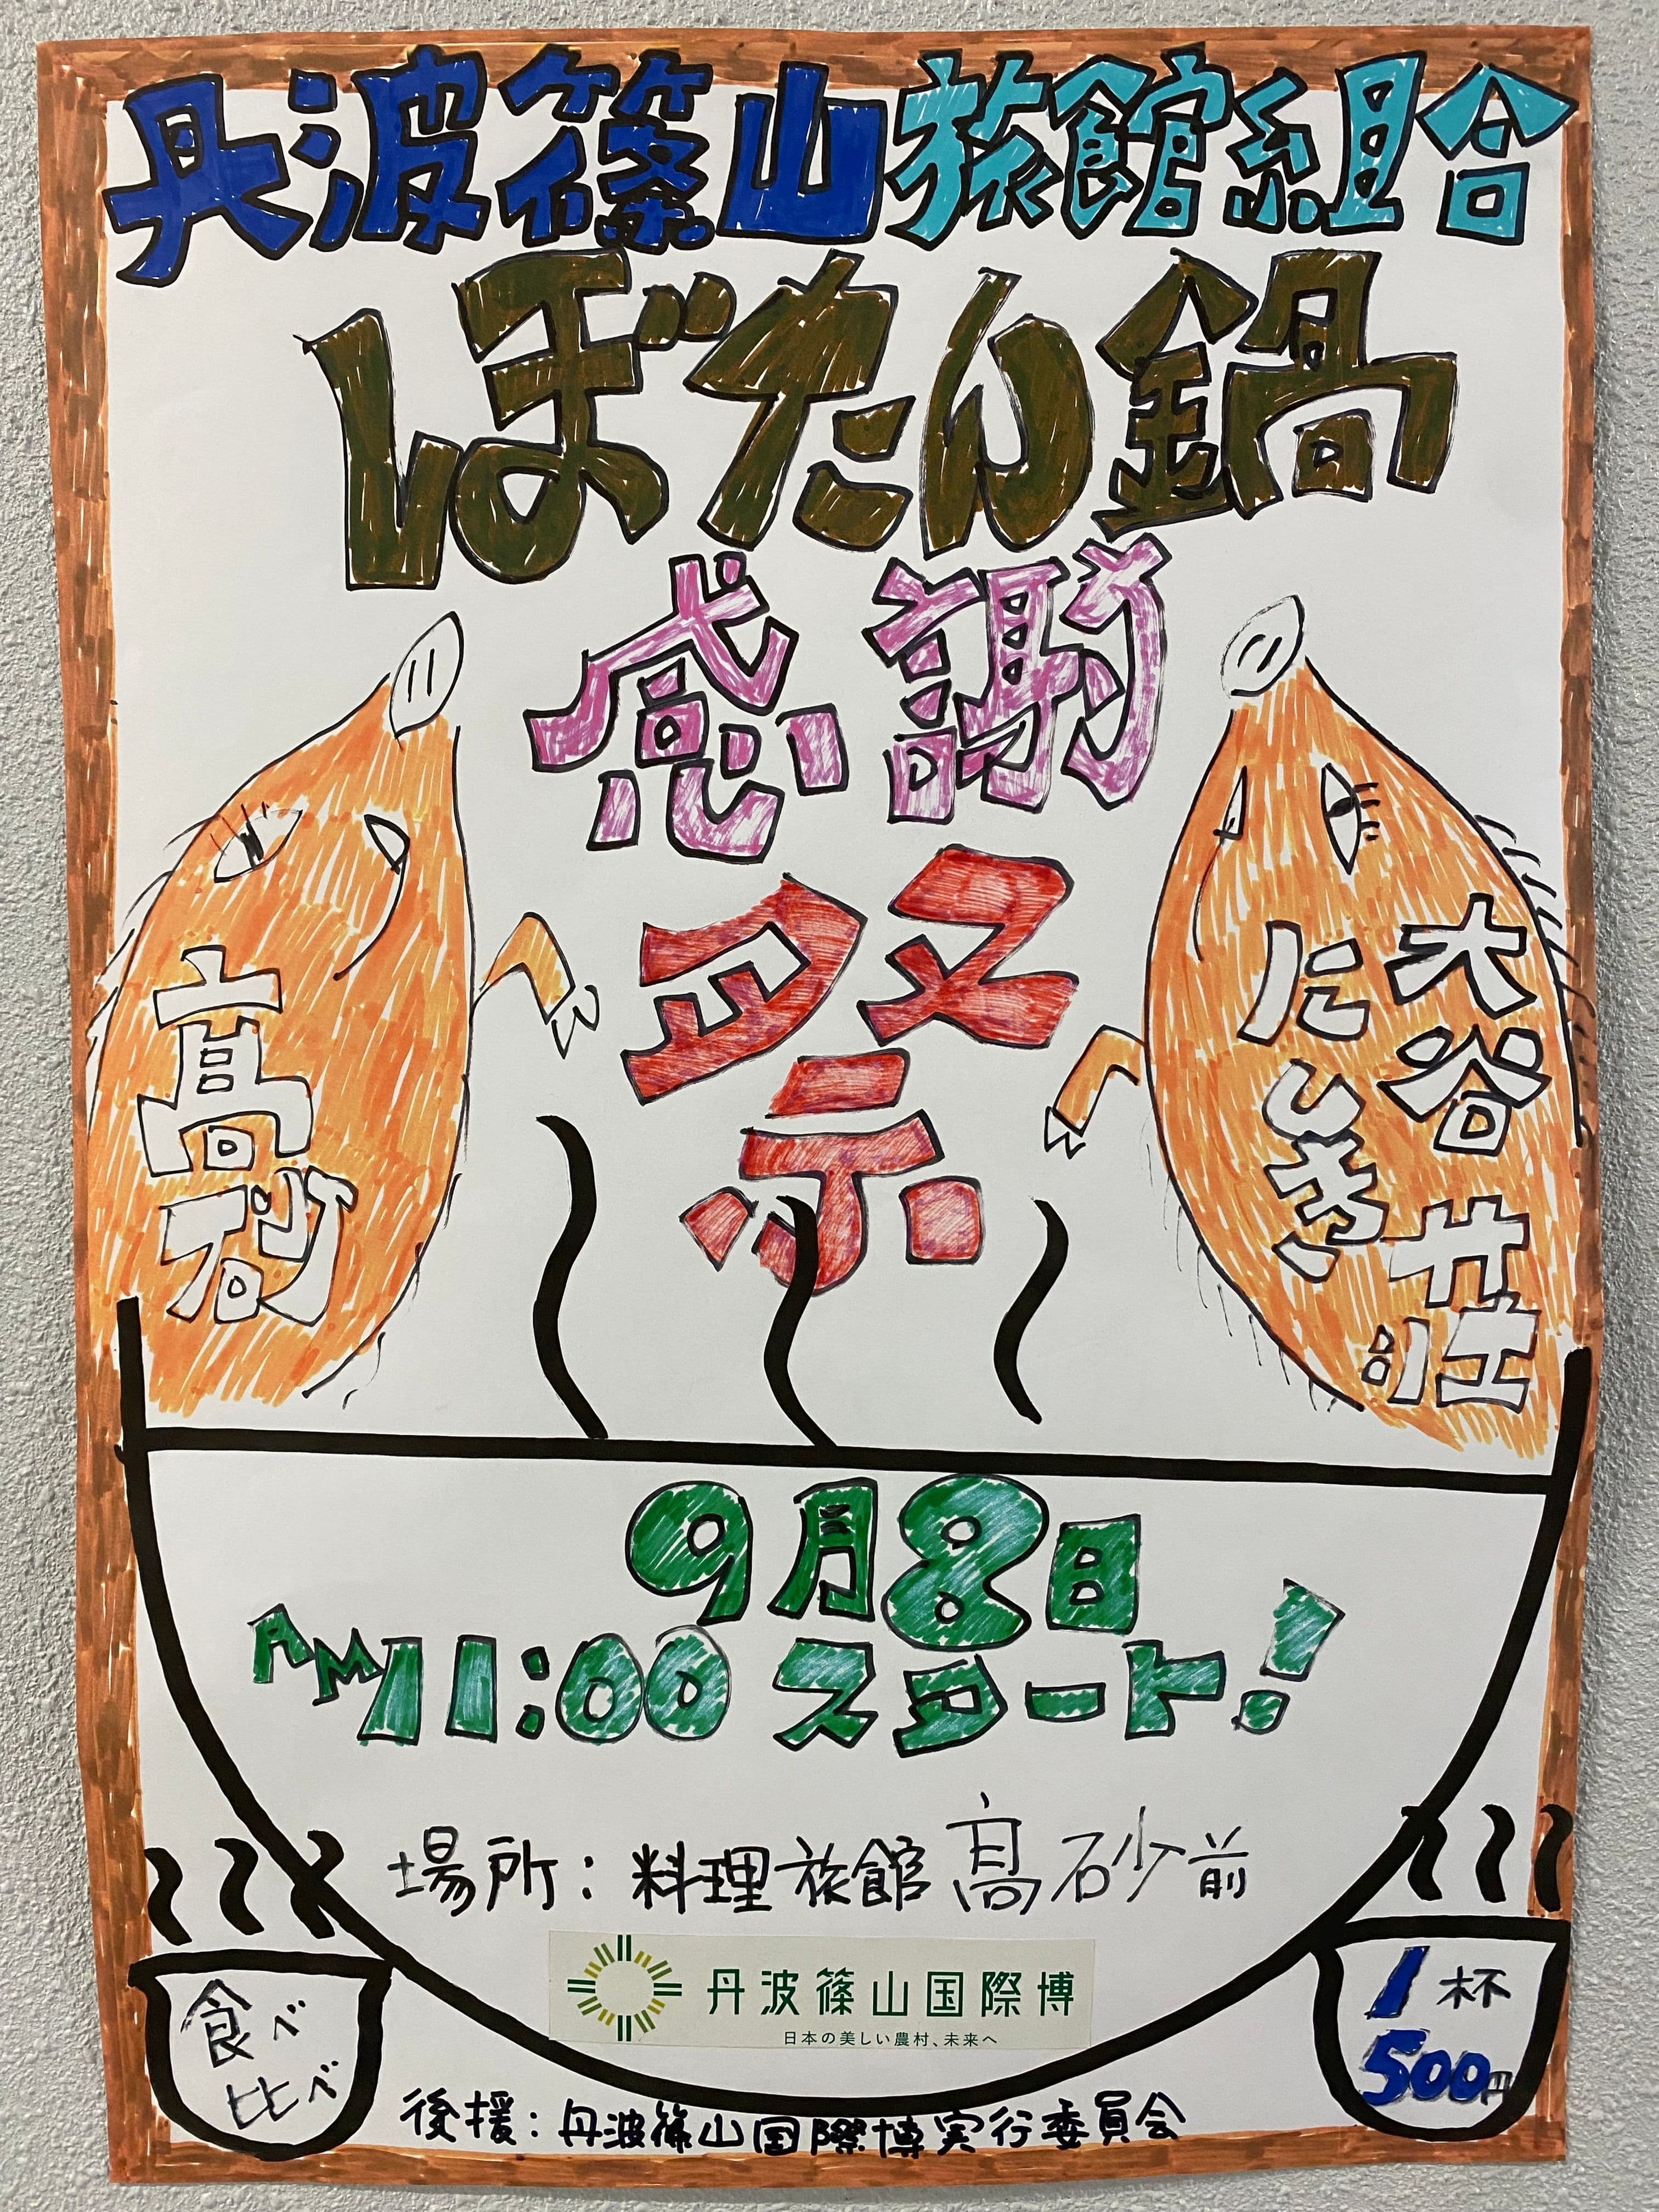 丹波篠山旅館組合
ぼたん鍋
感謝
祭
髙砂
大谷荘
にしき
9月8日
AM11:00スタート!
場所:料理旅館髙砂前
丹波篠山国際博
日本の美しい農村、未来へ
食べ
比べ
1杯
500円
後援:丹波篠山国際博実行委員会